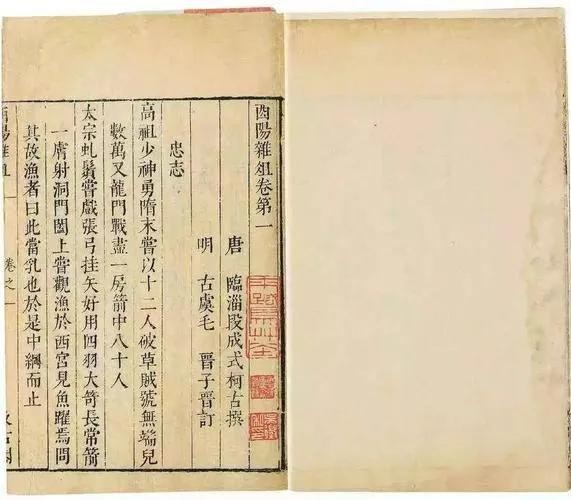 酉陽雜俎卷第一
唐 臨淄段成式柯古撰
明 古虞毛 晉子晉訂
忠志
高祖少神勇隋末嘗以十二人破草賊號無端兒
數萬又龍門戰盡一房箭中八十人
太宗虬鬚嘗戲張弓挂矢好用四羽大箭長常箭
一膚射洞門闔上嘗觀漁於西宮見魚躍焉問
其故漁者曰此當乳也於是中綱而止
酉陽雜俎
卷之一